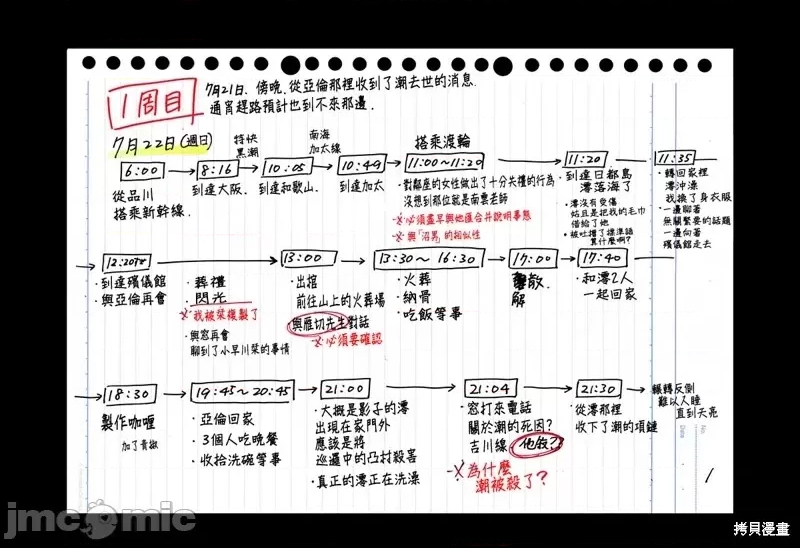 1周目
7月21日、傍晚、從亞倫那裡收到了潮去世的消息
通宵趕路預計也到不來那邊.
7月22日(週日)
特快
黑潮
南海
加太線
搭乘渡輪
6:00
8:16
10:05
10:49
11:00~11:20
11:20
11:35
從品川
搭乘新幹線.
到達大阪.
到達和歌山.
到達加太
・對鄰座的女性做出了十分失禮的行為
沒想到那位就是南雲老師
※必須盡早與她匯合并說明事態
※與「沼男」的相似性
・到達日都島
澪落海了
・澪沒有受傷
姑且是把我的毛巾
借給了他
・被吐槽了標準語
算什麼啊?
・轉回家裡
澪沖澡
我換了身衣服
一邊聊著
無關緊要的話題
一邊向著
殯儀館走去
・到達殯儀館
・與亞倫再會
・葬禮
・閃光
※我被栞複製了
・與窓再會
聊到了小早川栞的事情
13:00
・出棺
前往山上的火葬場
與雁切先生對話
※必須要確認
13:30~16:30
・火葬
・納骨
・吃飯等事
17:00
散
解
17:40
・和澪2人
一起回家
18:30
製作咖喱
加了青椒
19:45~20:45
・亞倫回家
・3個人吃晚餐
・收拾洗碗等事
21:00
・大概是影子的澪
出現在家門外
應該是將
巡邏中的凸村殺害
・真正的澪正在洗澡
21:04
・窓打來電話
關於潮的死因?
吉川線 他殺?
※為什麼
潮被殺了?
21:30
・從澪那裡
收下了潮的項鏈
輾轉反側
難以入睡
直到天亮
No
Date
1
jmcomic
拷貝漫畫